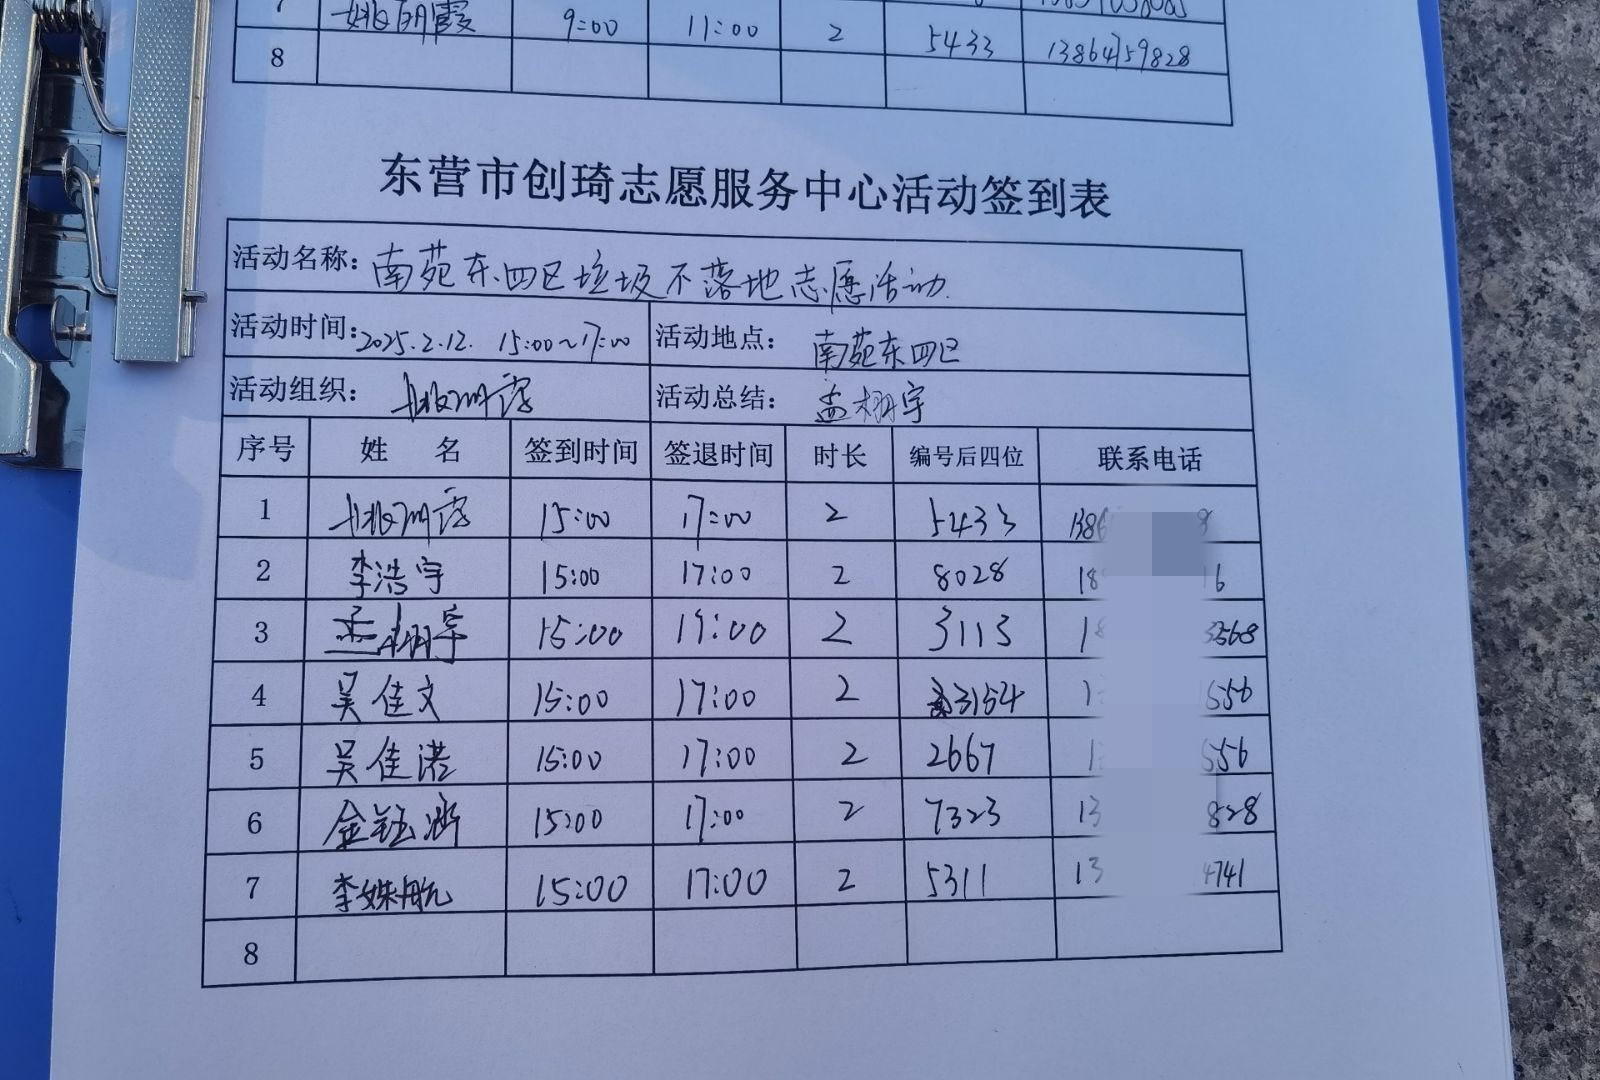 7 姚明霞 9:00 11:00 2 5433 13864759828
8
东营市创琦志愿服务中心活动签到表
活动名称: 南苑东四区垃圾不落地志愿活动.
活动时间: 2025.2.12. 15:00~17:00 活动地点: 南苑东四区
活动组织: 姚明霞 活动总结: 孟栩宇
序号 姓 名 签到时间 签退时间 时长 编号后四位 联系电话
1 姚明霞 15:00 17:00 2 5433 1386
2 李浩宇 15:00 17:00 2 8028 18 16
3 孟栩宇 15:00 17:00 2 3113 18 3568
4 吴佳文 15:00 17:00 2 3154 1 556
5 吴佳诺 15:00 17:00 2 2667 1 556
6 金钰涵 15:00 17:00 2 7323 13 828
7 李姝航 15:00 17:00 2 5311 13 4741
8